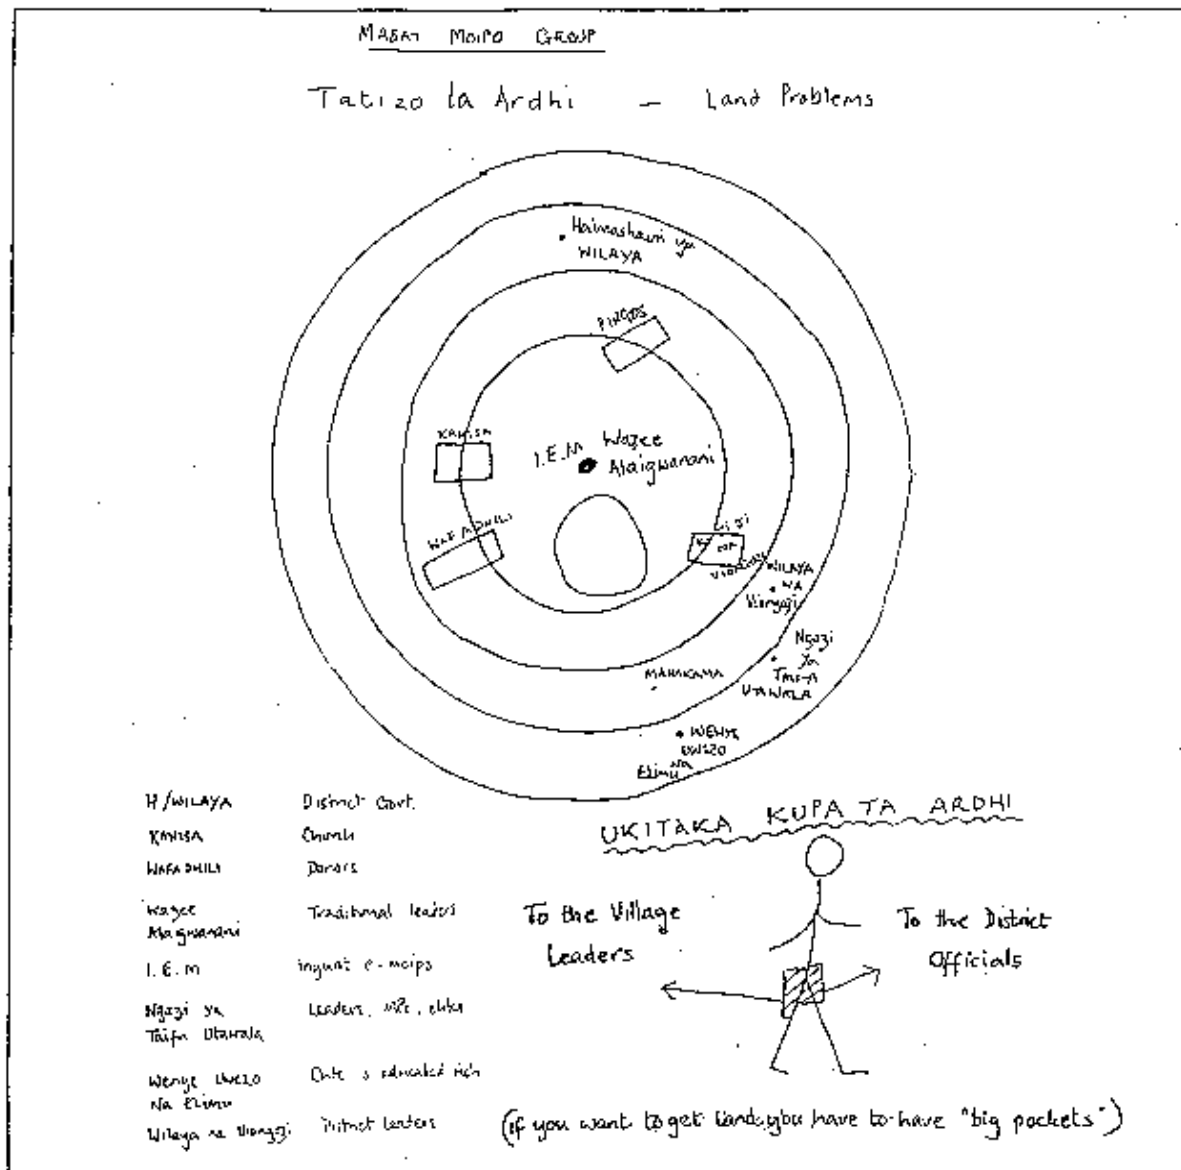 MAASAI MOIPO GROUP
Tatizo la Ardhi — Land Problems
Halmashauri ya
WILAYA
PINGOS
KANISA
I.E.M Wazee
Alaigwanani
WAFADHILI
KIJIJI
WILAYA
NA
Viongozi
Ngazi
ya
TAIFA
UTAWALA
MAHAKAMA
WENYE
UWEZO
NA
Elimu
H/WILAYA District Govt.
KANISA Church
WAFADHILI Donors
Wazee Traditional leaders
Alaigwanani
I.E.M ingunt e-moipo
Ngazi ya Leaders, MPs, elites
Taifa Utawala
Wenye Uwezo Elite & educated rich
Na Elimu
Wilaya na Viongozi District leaders
UKITAKA KUPATA ARDHI
To the Village
Leaders
To the District
Officials
(if you want to get land, you have to have "big pockets")